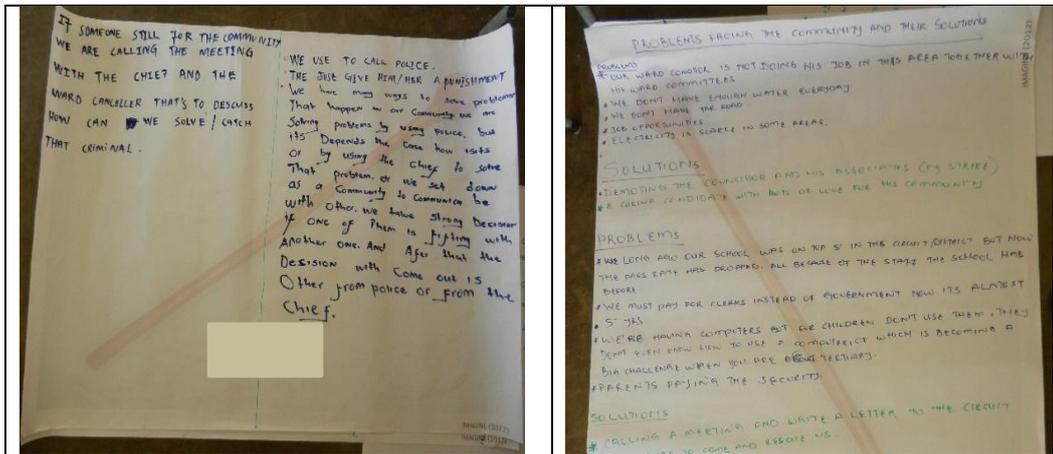 IF SOMEONE STILL FOR THE COMMUNITY
WE ARE CALLING THE MEETING
WITH THE CHIEF AND THE
WARD CANCELLER THAT'S TO DESCUSS
HOW CAN WE SOLVE / CATCH
THAT CRIMINAL.
WE USE TO CALL POLICE.
THE JUST GIVE HIM/HER A PUNISHMENT
We have many ways to solve problems
That happen in our Community we are
Solving problems by using police, but
its Depends the case how
or by using the Chief to solve
That problem. or we set down
as a Community to Communica be
with other. we take Strong Decision
if one of Them is fifting with
Another one. And Afer that the
Desision with Come out is
Other from police or from the
Chief.
IMAGINE (2012)
IMAGINE (2012)
PROBLEMS FACING THE COMMUNITY AND THEIR SOLUTIONS
PROBLEMS
* OUR WARD IS NOT DOING HIS JOB IN THIS AREA TOGETHER WITH
HIS WARD COMMITTEES
• WE DON'T HAVE ENOUGH WATER EVERYDAY
• WE DON'T HAVE TAR ROAD
• JOB OPPORTUNITIES
• ELECTRICITY IS SCARCE IN SOME AREAS.
SOLUTIONS
• DEMOTING THE COUNCILLOR AND HIS ASSOCIATES (eg STRIKE)
• A CARING CANDIDATE WITH LOTS OF LOVE FOR HIS COMMUNITY
PROBLEMS
* LONG AGO OUR SCHOOL WAS ON TOP 5 IN THIS CIRCUIT/DISTRICT BUT NOW
THE PASS RATE HAS DROPPED. ALL BECAUSE OF THE STAFF THE SCHOOL HAS
BEFORE.
* WE MUST PAY FOR CLEAKS INSTEAD OF GOVERNMENT NOW ITS ALMOST
• 5 YRS
* WE'RE HAVING COMPUTERS BUT OUR CHILDREN DON'T USE THEM, THEY
DON'T EVEN KNOW HOW TO USE A COMPUTER WHICH IS BECOMING A
BIG CHALLENGE WHEN YOU ARE TERTIARY.
* PARENTS PAYING THE SECURITY.
SOLUTIONS
* CALLING A MEETING AND WRITE A LETTER TO THE CIRCUIT
TO COME AND RESCUE US.
IMAGINE (2012)